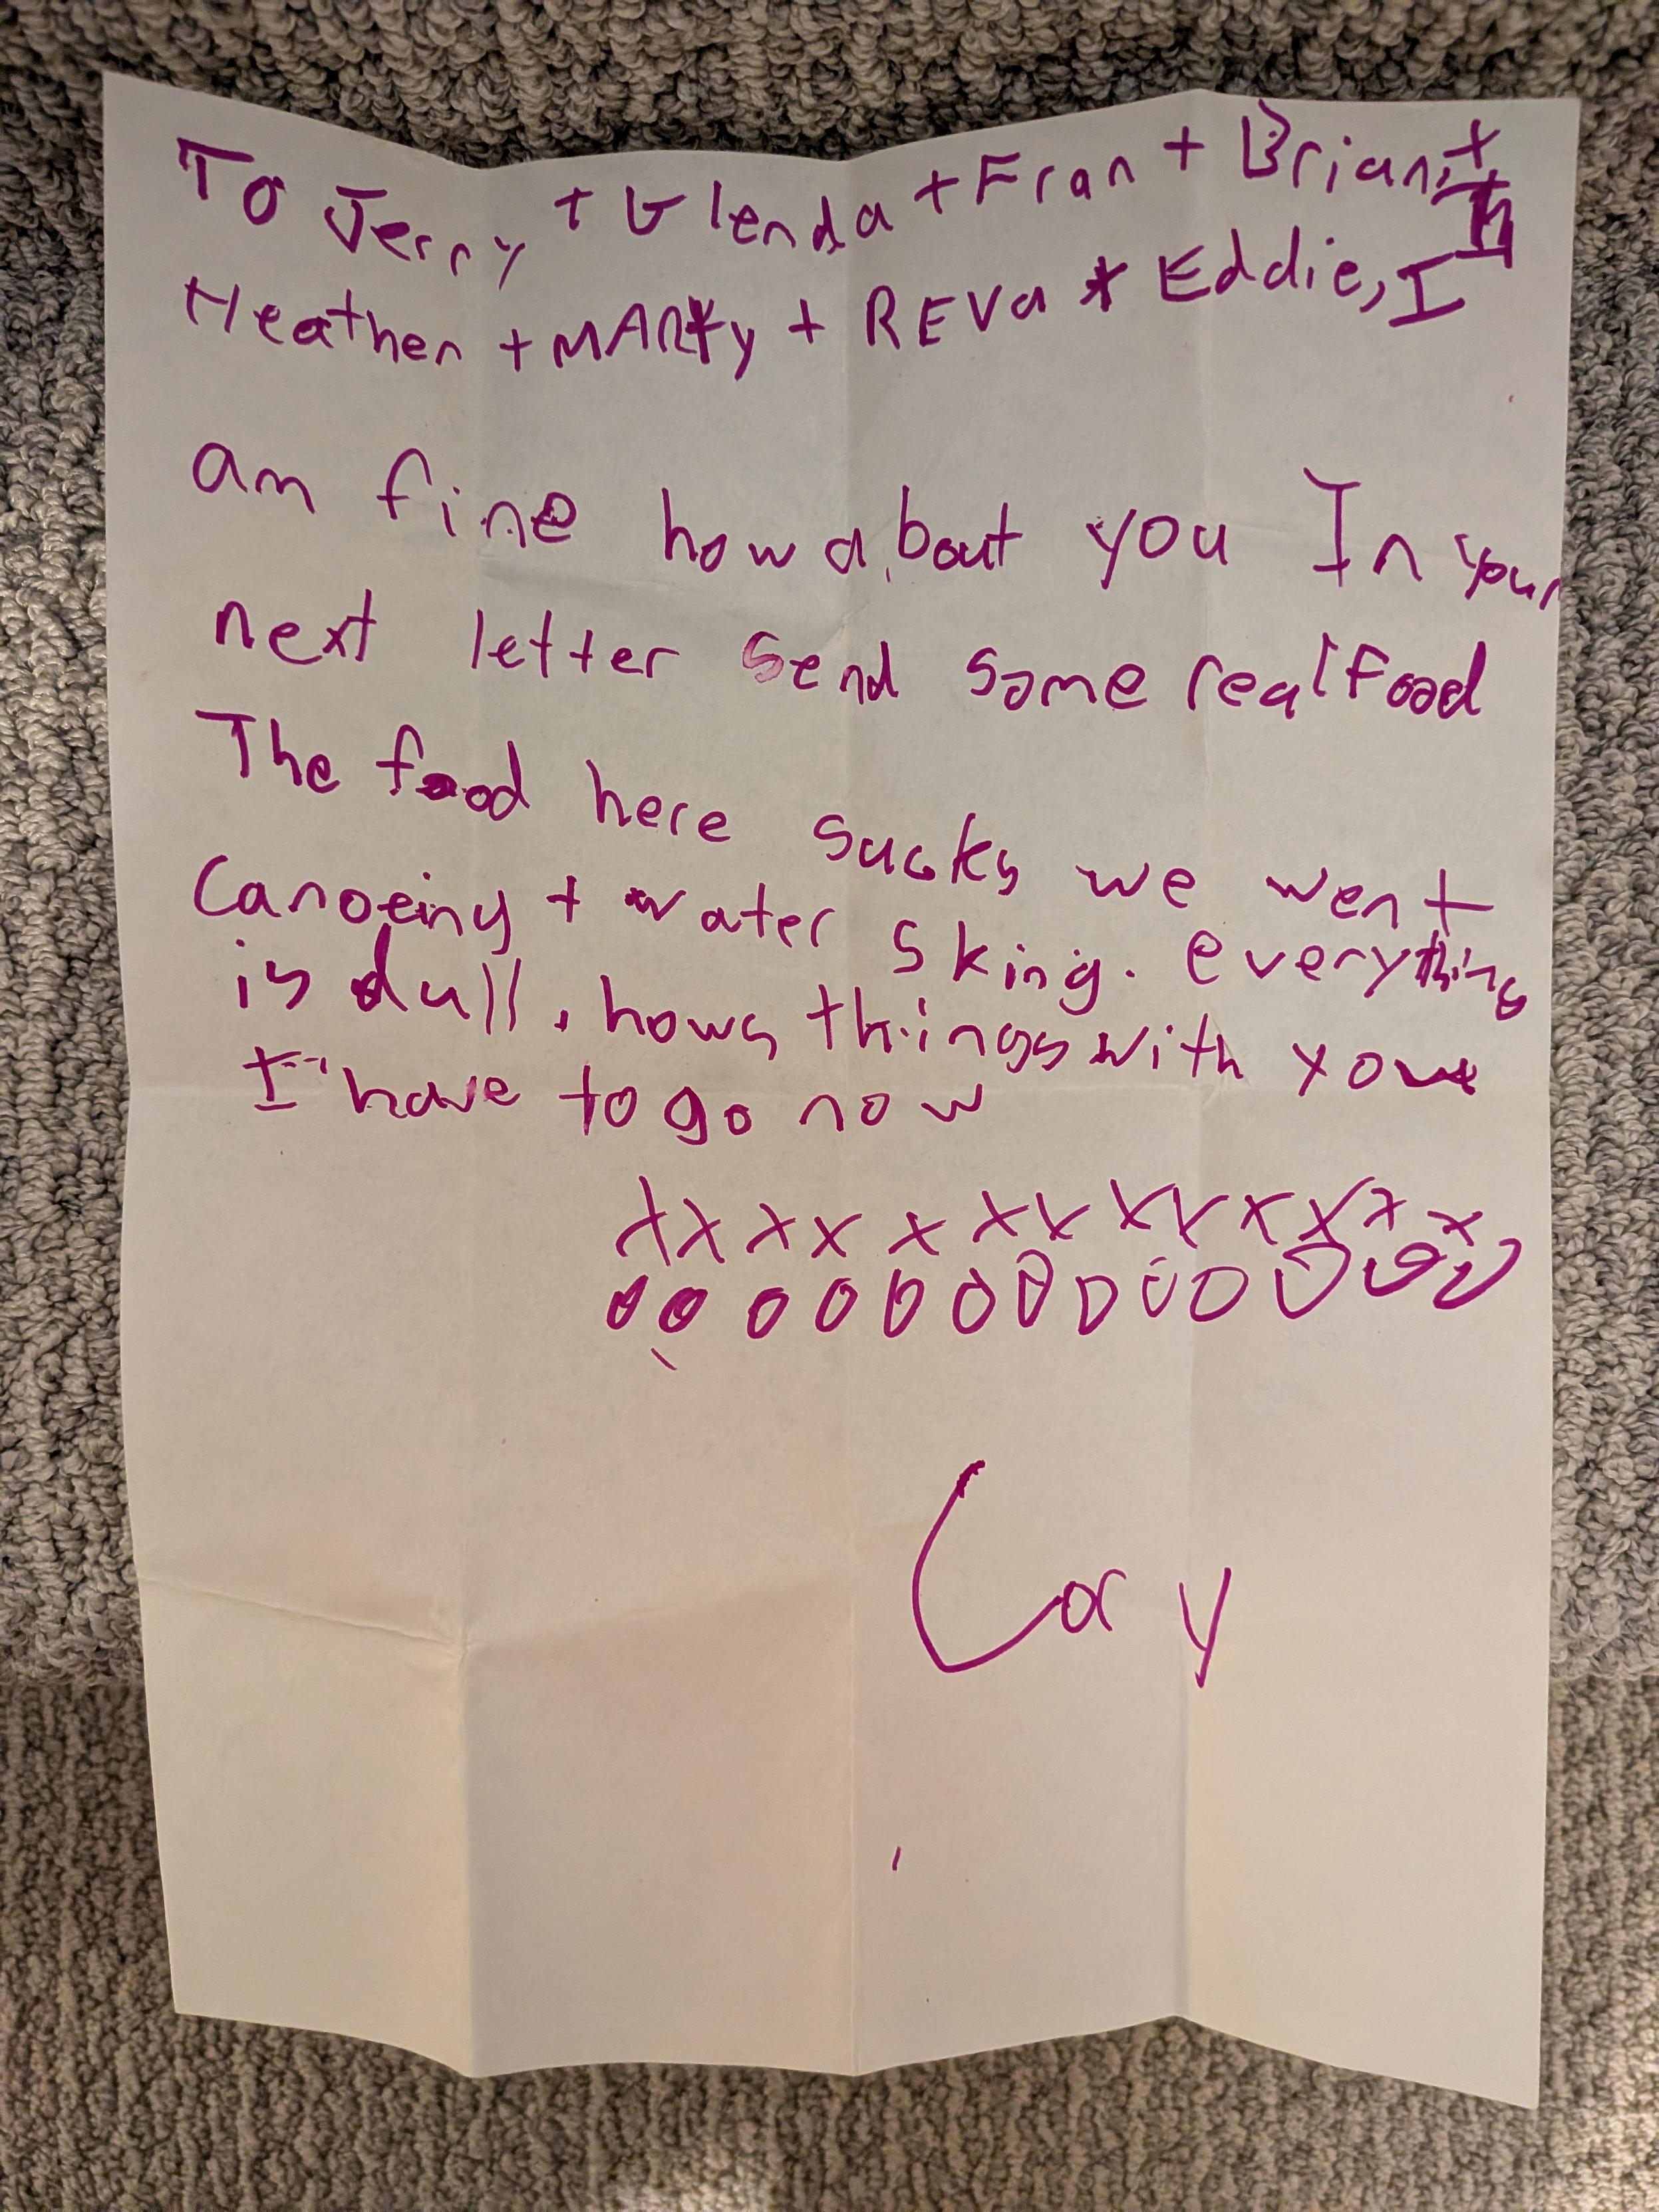 To Jerry + Glenda + Fran + Brian, +
Heather + MARty + REVa * Eddie, I
am fine how about you In your
next letter Send some real Food
The food here sucks we went
Canoeiny + water Sking. everything
is dull. hows things with you
I have to go now
X X X X X X X X X X X X X
O O O O O O O O O O O O O
Cory